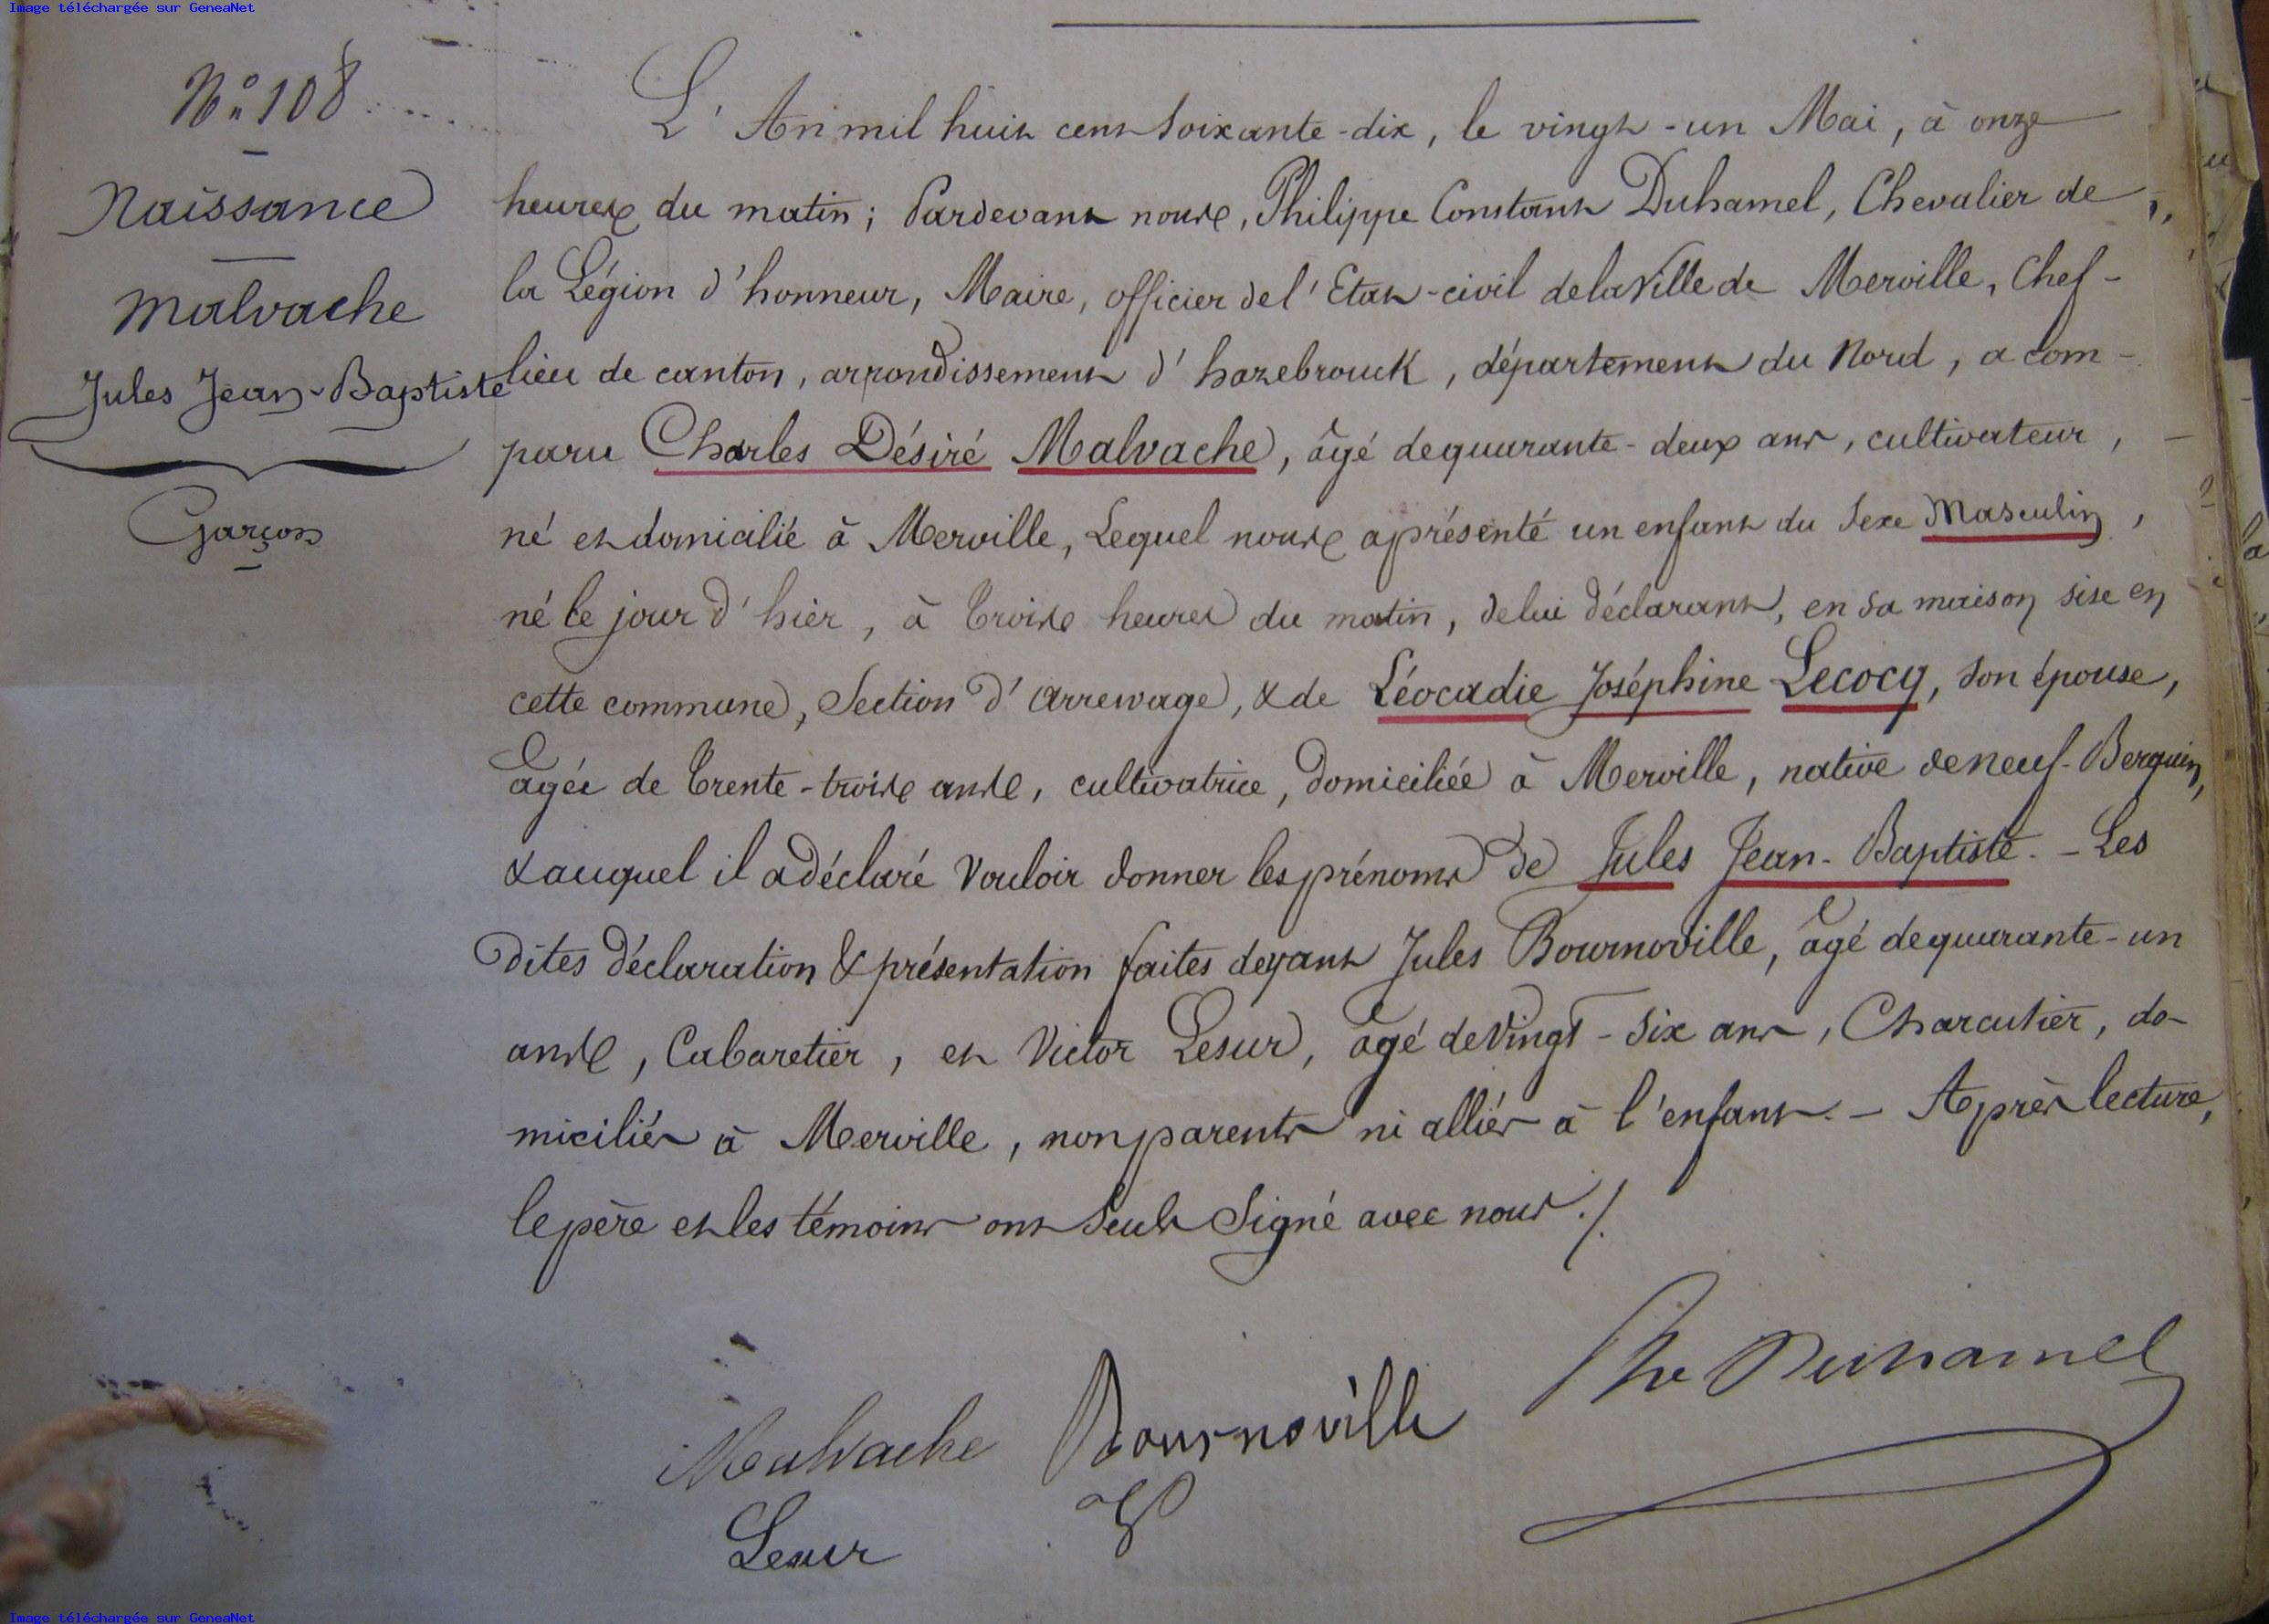 Image téléchargée sur GeneaNet
N° 108
Naissance
Malvache
Jules Jean-Baptiste
Garçon
L' An mil huit cent soixante-dix, le vingt-un Mai, à onze
heures du matin; Pardevant nous, Philippe Constant Duhamel, Chevalier de
la Légion d'honneur, Maire, officier de l'Etat-civil de la Ville de Merville, Chef-
lieu de canton, arrondissement d'hazebrouck, département du Nord, a com-
paru Charles Désiré Malvache, âgé de quarante-deux ans, cultivateur,
né et domicilié à Merville, Lequel nous a présenté un enfant du Sexe Masculin,
né le jour d'hier, à trois heures du matin, de lui déclarant, en sa maison sise en
cette commune, Section d'arrewage, & de Léocadie Joséphine Lecocq, son épouse,
âgée de trente-trois ans, cultivatrice, domiciliée à Merville, native de neuf-Berquin,
& auquel il a déclaré vouloir donner les prénoms de Jules Jean-Baptiste. - Les
dites déclaration & présentation faites devant Jules Bournoville, âgé de quarante-un
ans, Cabaretier, et Victor Lesur, âgé de Vingt-six ans, Charcutier, do-
miciliés à Merville, non parents ni alliés à l'enfant. - Après lecture,
le père et les témoins ont seuls signé avec nous ./.
Malvache Bournoville Phe Duhamel
Lesur
Image téléchargée sur GeneaNet